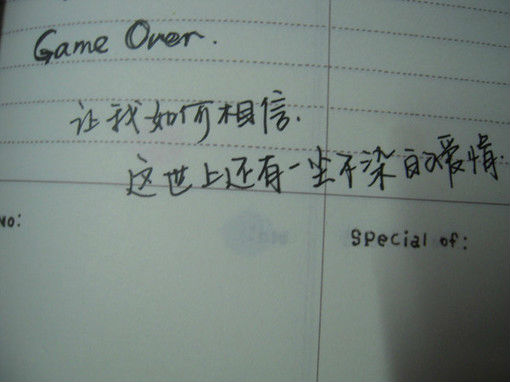 Game Over.
让我如何相信.
这世上还有一尘不染的爱情.
No:
Special of: